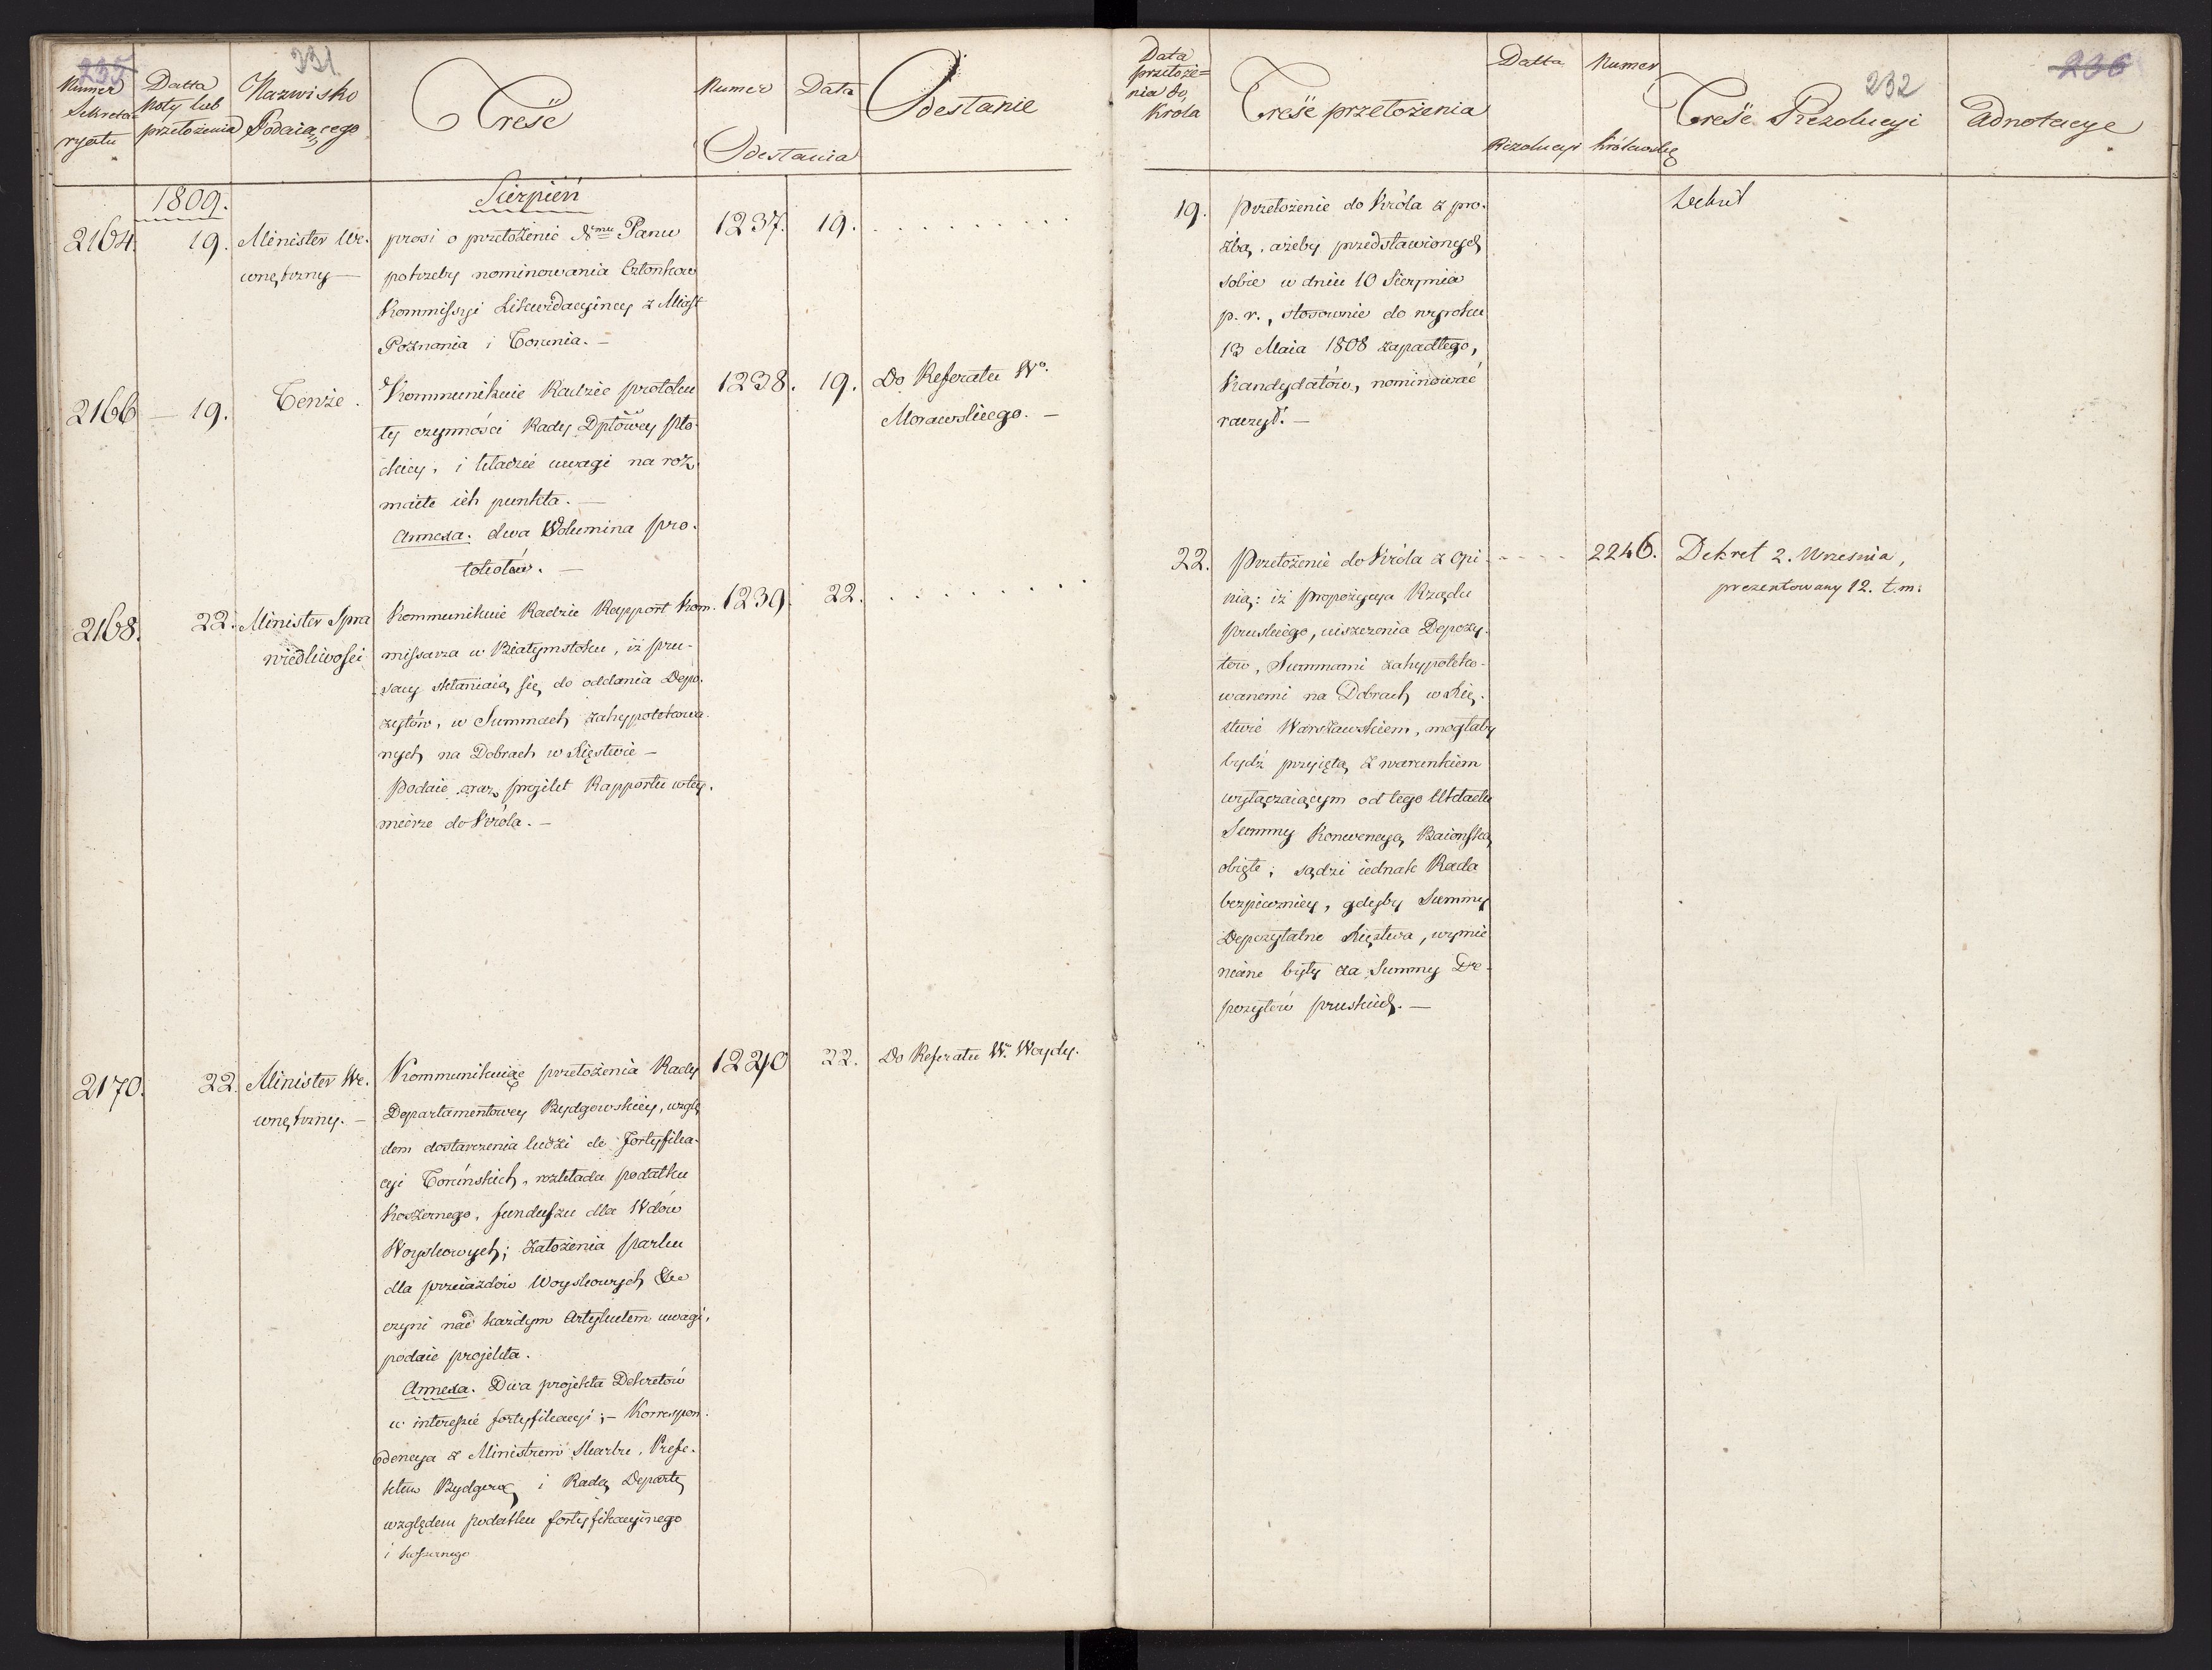 235
231
Numer Sekreta-
ryatu
Datta
Noty lub
przełożenia
Nazwisko
Podaiącego
Treść
Numer Data
Odesłania
Odesłanie
1809.
Sierpień
2164. 19. Minister We-
wnętrzny —
prosi o przełożenie Nmu Panu
potrzeby nominowania Członków
Kommissyi Likwidacyiney z Miast
Poznania i Torunia. —
1237. 19. . . . . . . .
2166 — 19. Tenże.
Kommunikuie Radzie protoku
ły czynności Rady Dptowey Pło-
ckiey, i kładzie uwagi na roz-
maite ich punkta. —
Annexa. dwa Wolumina pro-
tokołów. —
1238. 19. Do Referatu Wo.
Morawskiego. —
2168. 22. Minister Spra
wiedliwości
Kommunikuie Radzie Rapport Kom-
missarza w Białymstoku, iż pru-
sacy skłaniaią się do oddania Depo-
zytów, w Summach zahypotekowa-
nych na Dobrach w Xięstwie —
Podaie oraz projekt Rapportu w tey
mierze do Króla. —
1239. 22. . . . . . . . .
2170. 22. Minister We-
wnętrzny. —
Kommunikuiąc przełożenia Rady
Departamentowey Bydgowskiey, wzglę
dem dostarczenia ludzi do Fortyfika-
cyi Toruńskich, rozkładu podatku
Koszernego, funduszu dla Wdów
Woyskowych; założenia parku
dla przeiazdów Woyskowych &c
czyni nad każdym Artykułem uwagi,
podaie projekta.
Annexa. Dwa projekta Dekretów
w interessie fortyfikacyi; — Korrespon-
dencya z Ministrem Skarbu, Prefe-
ktem Bydgow. i Radą Departą
względem podatku fortyfikacyinego
i koszernego
1240 22. Do Referatu Wo. Woydy.
236
232
Data
przełoże-
nia do
Króla
Treść przełożenia
Datta Numer
Rezolucyi Królewskiey
Treść Rezolucyi
Adnotacye
19. Przełożenie do Króla z pro-
źbą, ażeby przedstawionych
sobie w dniu 10 Sierpnia
p. r., stosownie do wyroku
13 Maia 1808 zapadłego,
Kandydatów, nominować
raczył. —
Dekret
22. Przełożenie do Króla z opi-
nią: iż propozycya Rządu
pruskiego, uiszczenia Depozy-
tów, Summami zahypoteko-
wanemi na Dobrach w Xię-
stwie Warszawskiem, mogłaby
bydź przyiętą z warunkiem
wyłączaiącym od tego Układu
Summy Konwencyą Baionską
obięte; sądzi iednak Rada
bezpieczniey, gdyby Summy
Depozytalne Xięstwa, wymie
niane były za Summy De-
pozytów pruskich. —
2246. Dekret 2. Września,
prezentowany 12. t.m.